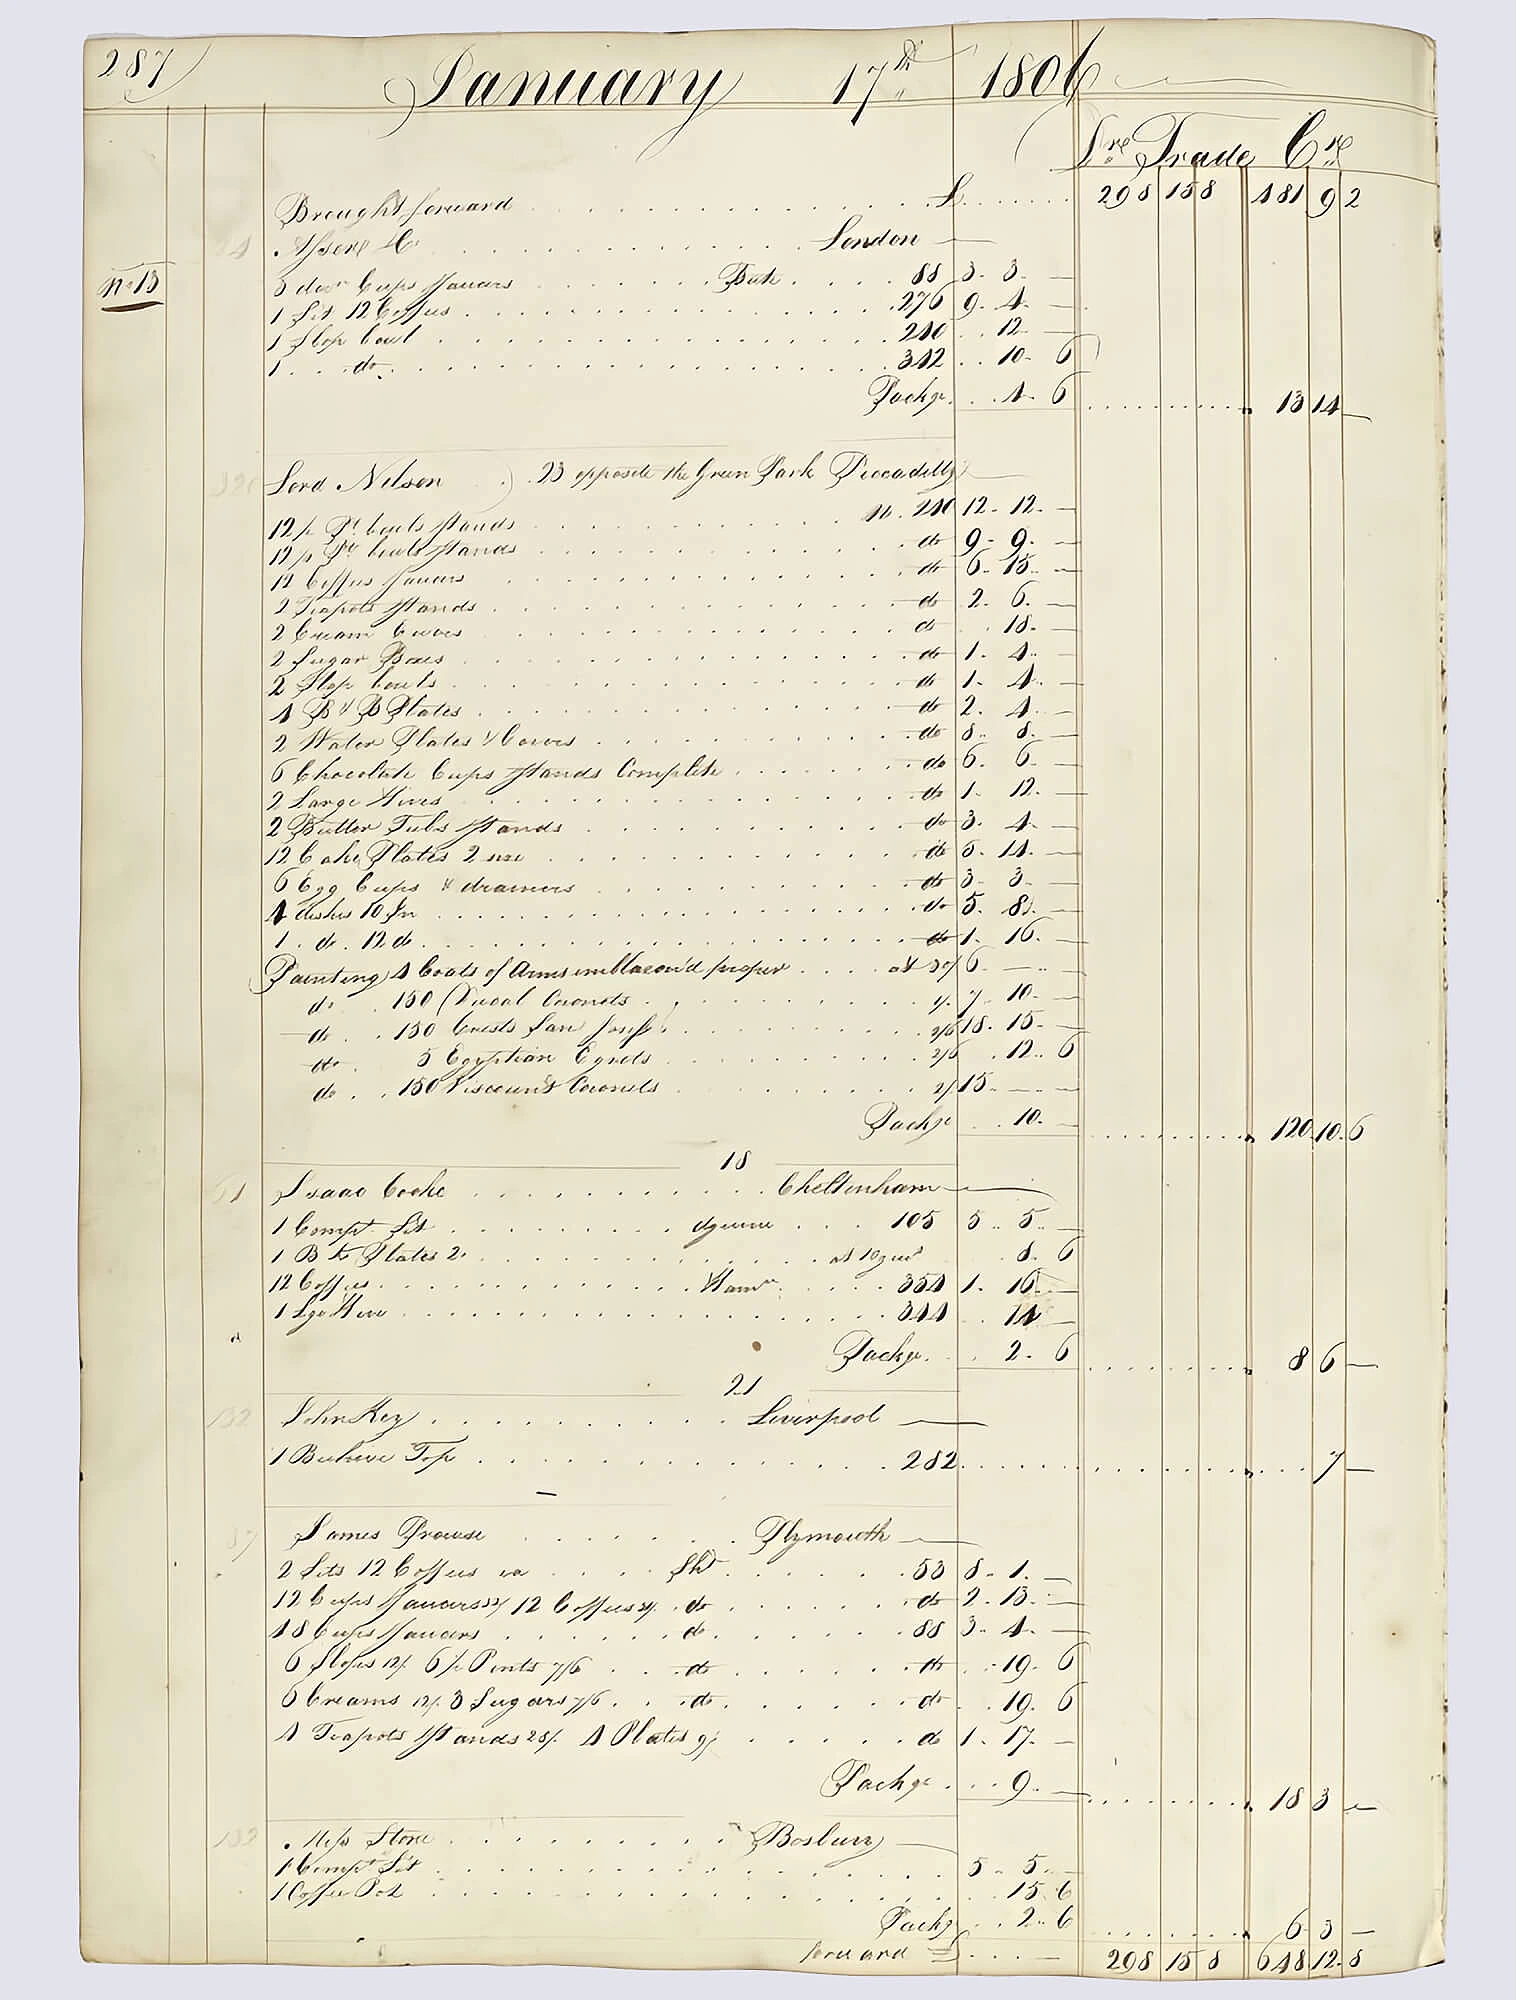 287
January 17th 1806
Dre Trade Cre
Brought forward £ 298 15 8 481 9 2
London
No 13
3 doz Cups Saucers Bute 88 3. 3. —
1 Set 12 Coffees 276 9. 4. —
1 Slop bowl 240 12. —
1 do 342 10. 6
Packge 4. 6 13 14 —
Lord Nelson 23 opposite the Green Park Piccadilly
12 p Pt bowls Stands No. 240 12. 12. —
12 p Pt bowls Stands do 9. 9. —
12 Coffees Saucers do 6. 15. —
2 Teapots Stands do 2. 6. —
2 Cream Ewers do 18. —
2 Sugar Boxes do 1. 4. —
2 Slop bowls do 1. 4. —
4 B & B Plates do 2. 4. —
2 Water Plates & Covers do 8. 8. —
6 Chocolate Cups Stands Complete do 6. 6. —
2 Large Hives do 1. 12. —
2 Butter Tubs Stands do 3. 4. —
12 Cake Plates 2 size do 5. 14. —
6 Egg Cups & drainers do 3. 3. —
4 dishes 10 In do 5. 8. —
1 do. 12 do. do 1. 16. —
Painting 4 Coats of Arms emblazon'd proper at 30/ 6. — —
do 150 Ducal Coronets 1/. 7. 10. —
do 150 Crests San Josef 2/6 18. 15. —
do 5 Egyptian Egrets 2/6 12. 6
do 150 Viscount's Coronets 2/ 15. — —
Packge 10. — 120. 10. 6
18
Isaac Cooke Cheltenham
1 Compt Set 105 5. 5. —
1 B & Plates 2 at 10 8. 6
12 Coffees 354 1. 16. —
1 Lge Hive 344 14 —
Packge 2. 6 8 6 —
21
132 John Key Liverpool
1 Beehive Top 282 7 —
87 James Prowse Plymouth
2 Sets 12 Coffees ea Sht 53 8. 1. —
12 Cups Saucers 12 Coffees do do 2. 13. —
48 Cups Saucers do 88 3. 4. —
6 Slops 12/. 6 p Pints 7/6 do do 19. 6
6 Creams 12/. 3 Sugars 7/6 do do 19. 6
4 Teapots Stands 28/. 4 Plates 9/ do 1. 17. —
Packge 9. — 18 3 —
133 Miss Stone Bosbury
1 Compt Set 5. 5. —
1 Coffee Pot 15 6
Packg 2. 6 6 3 —
forward £ 298 15 8 648 12. 8